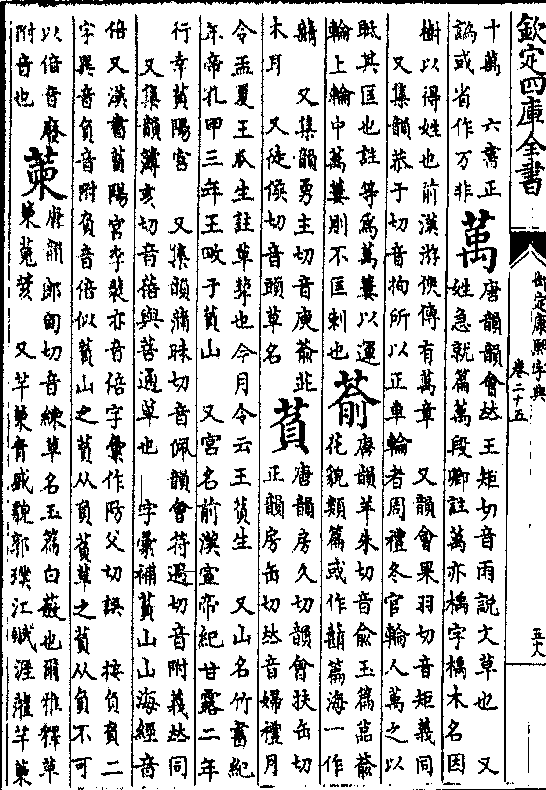 欽定四庫全書
御定康熙字典
卷二十五
十萬　六寓正
譌或省作万非
萭
唐韻韻會𠀤王矩切音雨說文草也　又
姓急就篇萭段卿註萭亦楀字楀木名因
樹以得姓也前漢游俠傳有萭章　又韻會果羽切音矩義同
又集韻恭于切音拘所以正車輪者周禮冬官輪人萭之以
眡其匡也註等為萭蔞以運
輪上輪中萭蔞則不匡刺也
萮
唐韻羊朱切音俞玉篇萮
花貌類篇或作蘛篇海一作
蘛　又集韻勇主切音庾萮韭
木耳　又徒侯切音頭草名
萯
唐韻房久切韻會扶缶切
正韻房缶切𠀤音婦禮月
令孟夏王瓜生註草挈也今月令云王萯生　又山名竹書紀
年帝孔甲三年王畋于萯山　又宮名前漢宣帝紀甘露二年
行幸萯陽宮　又集韻蒲昧切音佩韻會符遇切音附義𠀤同
又集韻簿亥切音蓓與菩通草也　字彙補萯山山海經音
倍又漢書萯陽宮李裴亦音倍字彙作防父切誤　按負䝿二
字異音負音附䝿音倍似萯山之萯从䝿萯草之萯从負不可
以倍音廢
附音也
萰
唐韻郎甸切音練草名玉篇白蘞也爾雅釋草
萰菟荄　又芊萰青盛貌郭璞江賦涯灌芊萰